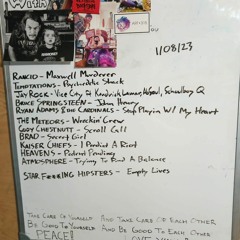 With
1/08/23
RANCID - Maxwell Murderer
TEMPTATIONS - Psychedelic Shack
JAY ROCK - Vice City ft Kendrick Lamar, Schoolboy Q
BRUCE SPRINGSTEEN - John Henry
RYAN ADAMS & THE CARDINALS - Stop Playin W/ My Heart
THE METEORS - Wreckin' Crew
CODY CHESTNUTT - Scroll Call
BRAD - Secret Girl
KAISER CHIEFS - I Predict A Riot
HEAVENS - Patent Pending
ATMOSPHERE - Trying To Find A Balance
STAR F★★KING HIPSTERS - Empty Lives
TAKE CARE OF YOURSELF AND TAKE CARE OF EACH OTHER
BE GOOD TO YOURSELF AND BE GOOD TO EACH OTHER
PEACE!